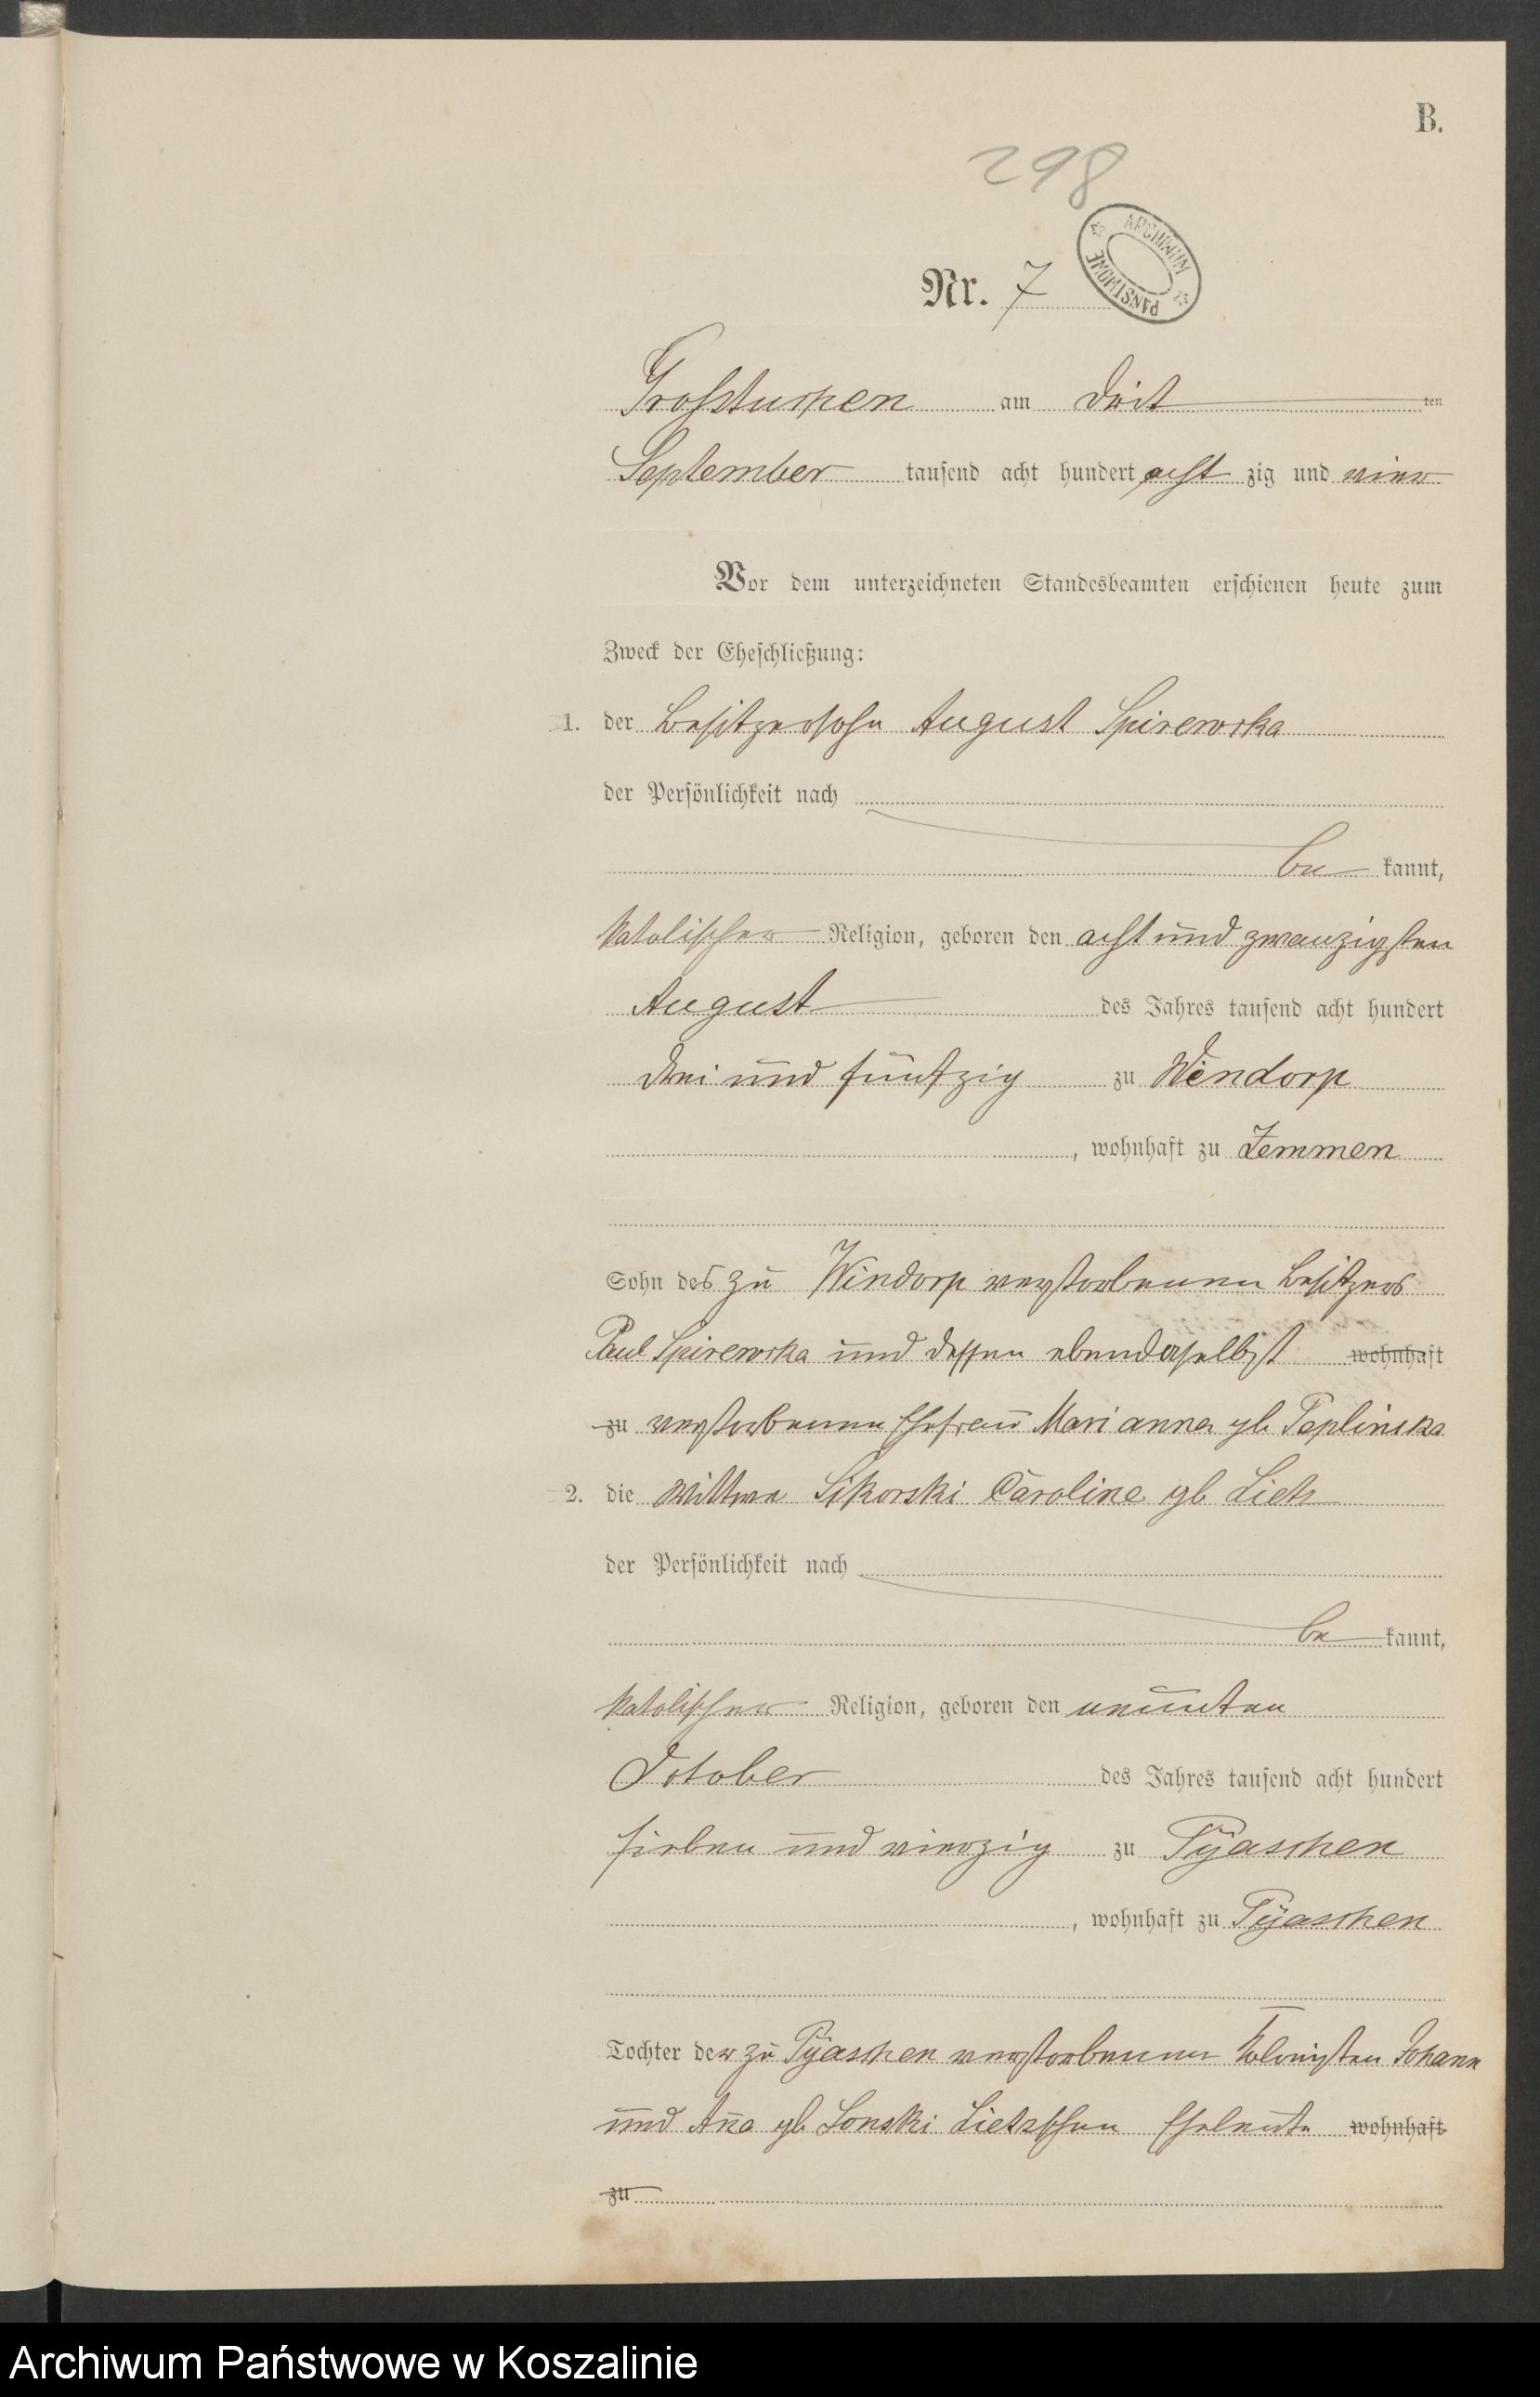 B.
298
Nr. 7
ARCHIWUM PAŃSTWOWE
Grosstuchen am dritten
September tausend acht hundert acht zig und vier
Vor dem unterzeichneten Standesbeamten erschienen heute zum
Zweck der Eheschließung:
1. der Besitzersohn August Spirewska
der Persönlichkeit nach
be kannt,
katolischer Religion, geboren den acht und zwanzigsten
August des Jahres tausend acht hundert
drei und fünfzig zu Windorp
, wohnhaft zu Zemmen
Sohn des zu Windorp verstorbenen Besitzers
Paul Spirewska und dessen ebendaselbst wohnhaft
zu verstorbenen Ehefrau Marianna gb Peplinska
2. die Wittwe Sikorski Caroline gb Lietz
der Persönlichkeit nach
be kannt,
katolischer Religion, geboren den neunten
October des Jahres tausend acht hundert
sieben und vierzig zu Pyaschen
, wohnhaft zu Pyaschen
Tochter der zu Pyaschen verstorbenen Kolonisten Johann
und Anna gb Lonski Lietzschen Eheleute wohnhaft
zu
Archiwum Państwowe w Koszalinie